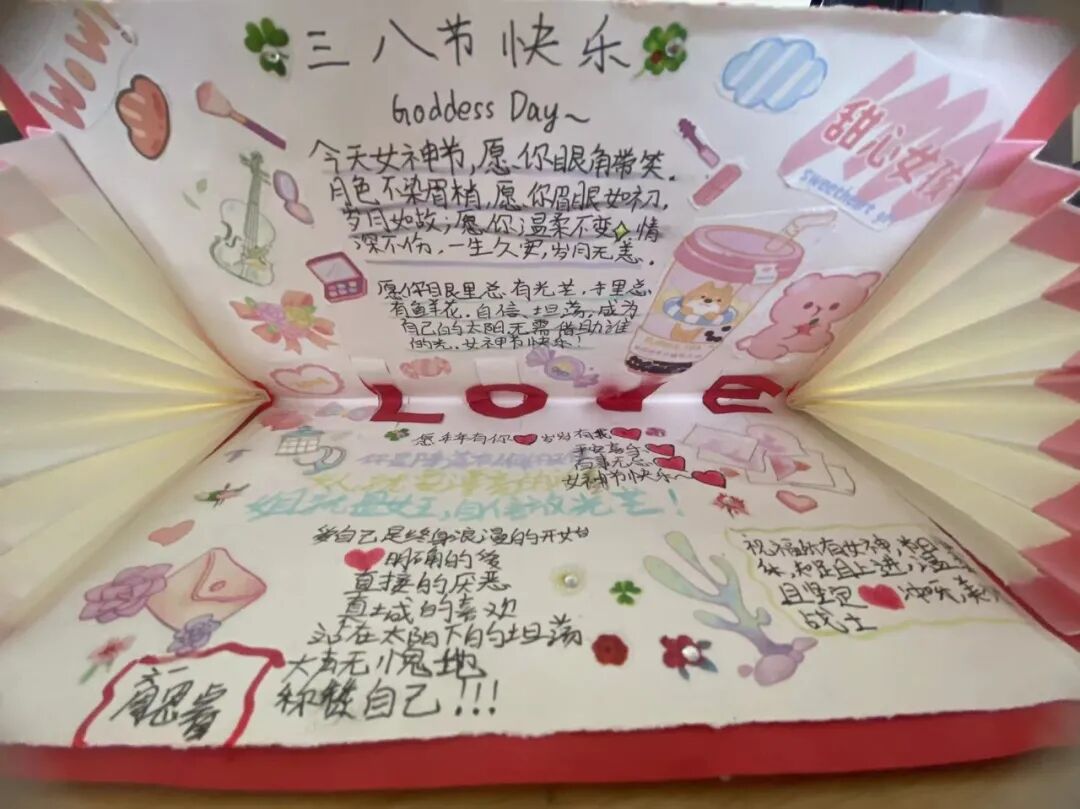 WOW!
三八节快乐
Goddess Day~
甜心女孩
sweetheart
今天女神节,愿你眼角带笑.
月色不染眉梢,愿你眉眼如初,
岁月如故;愿你温柔不变,情
深不伤,一生久安,岁月无恙.
愿你眼里总有光芒,手里总
有鲜花.自信、坦荡,成为
自己的太阳,无需借助谁
的光.女神节快乐!
LOVE
愿年年有你 岁岁有我
平安喜乐
万事无忘
女神节快乐~
姐就是女王,自信放光芒!
爱自己是终身浪漫的开始
明确的爱
直接的厌恶
真诚的喜欢
站在太阳下的坦荡
大声无愧地
称赞自己!!!
祝福所有女神,
知足且上进,温
且坚定
战士